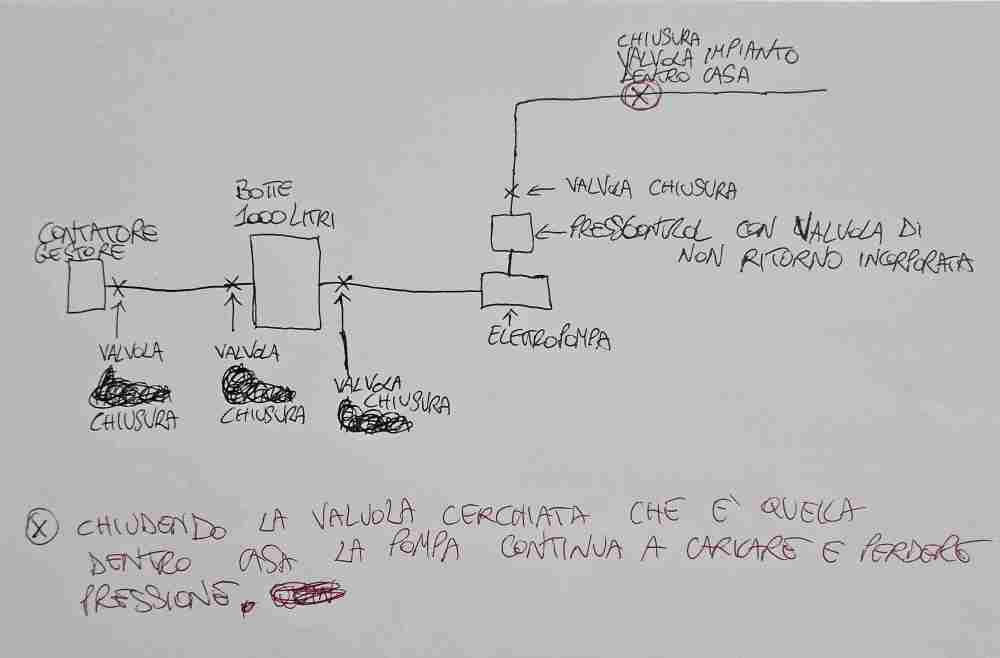 CHIUSURA
VALVOLA IMPIANTO
DENTRO CASA
VALVOLA CHIUSURA
PRESSCONTROL CON VALVOLA DI
NON RITORNO INCORPORATA
BOTTE
1000 LITRI
CONTATORE
GESTORE
ELETTROPOMPA
VALVOLA
CHIUSURA
VALVOLA
CHIUSURA
VALVOLA
CHIUSURA
X CHIUDENDO LA VALVOLA CERCHIATA CHE E' QUELLA
DENTRO CASA LA POMPA CONTINUA A CARICARE E PERDERE
PRESSIONE.